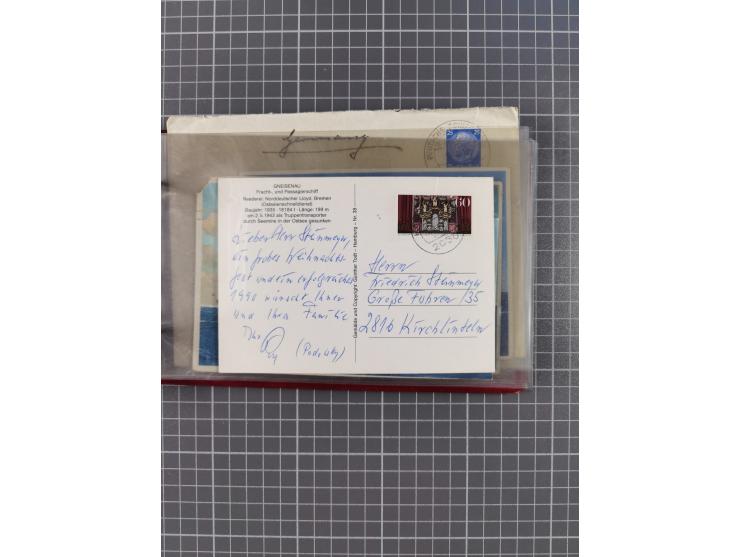 Germany
25
GNEISENAU
Fracht- und Passagierschiff
Reederei: Norddeutscher Lloyd, Bremen
(Ostasienschnelldienst)
Baujahr: 1935 · 18184 t · Länge: 199 m
am 2. 5. 1943 als Truppentransporter
durch Seemine in der Ostsee gesunken
Lieber Herr Stünmeyer,
ein frohes Weihnachts-
fest und ein erfolgreiches
1990 wünscht Ihnen
und Ihrer Familie
Ihr
(Podolsky)
Gemälde und Copyright: Günther Todt – Hamburg – Nr. 39
60
Herrn
Friedrich Stünmeyer
Große Fuhren /35
2816 Kirchlinteln